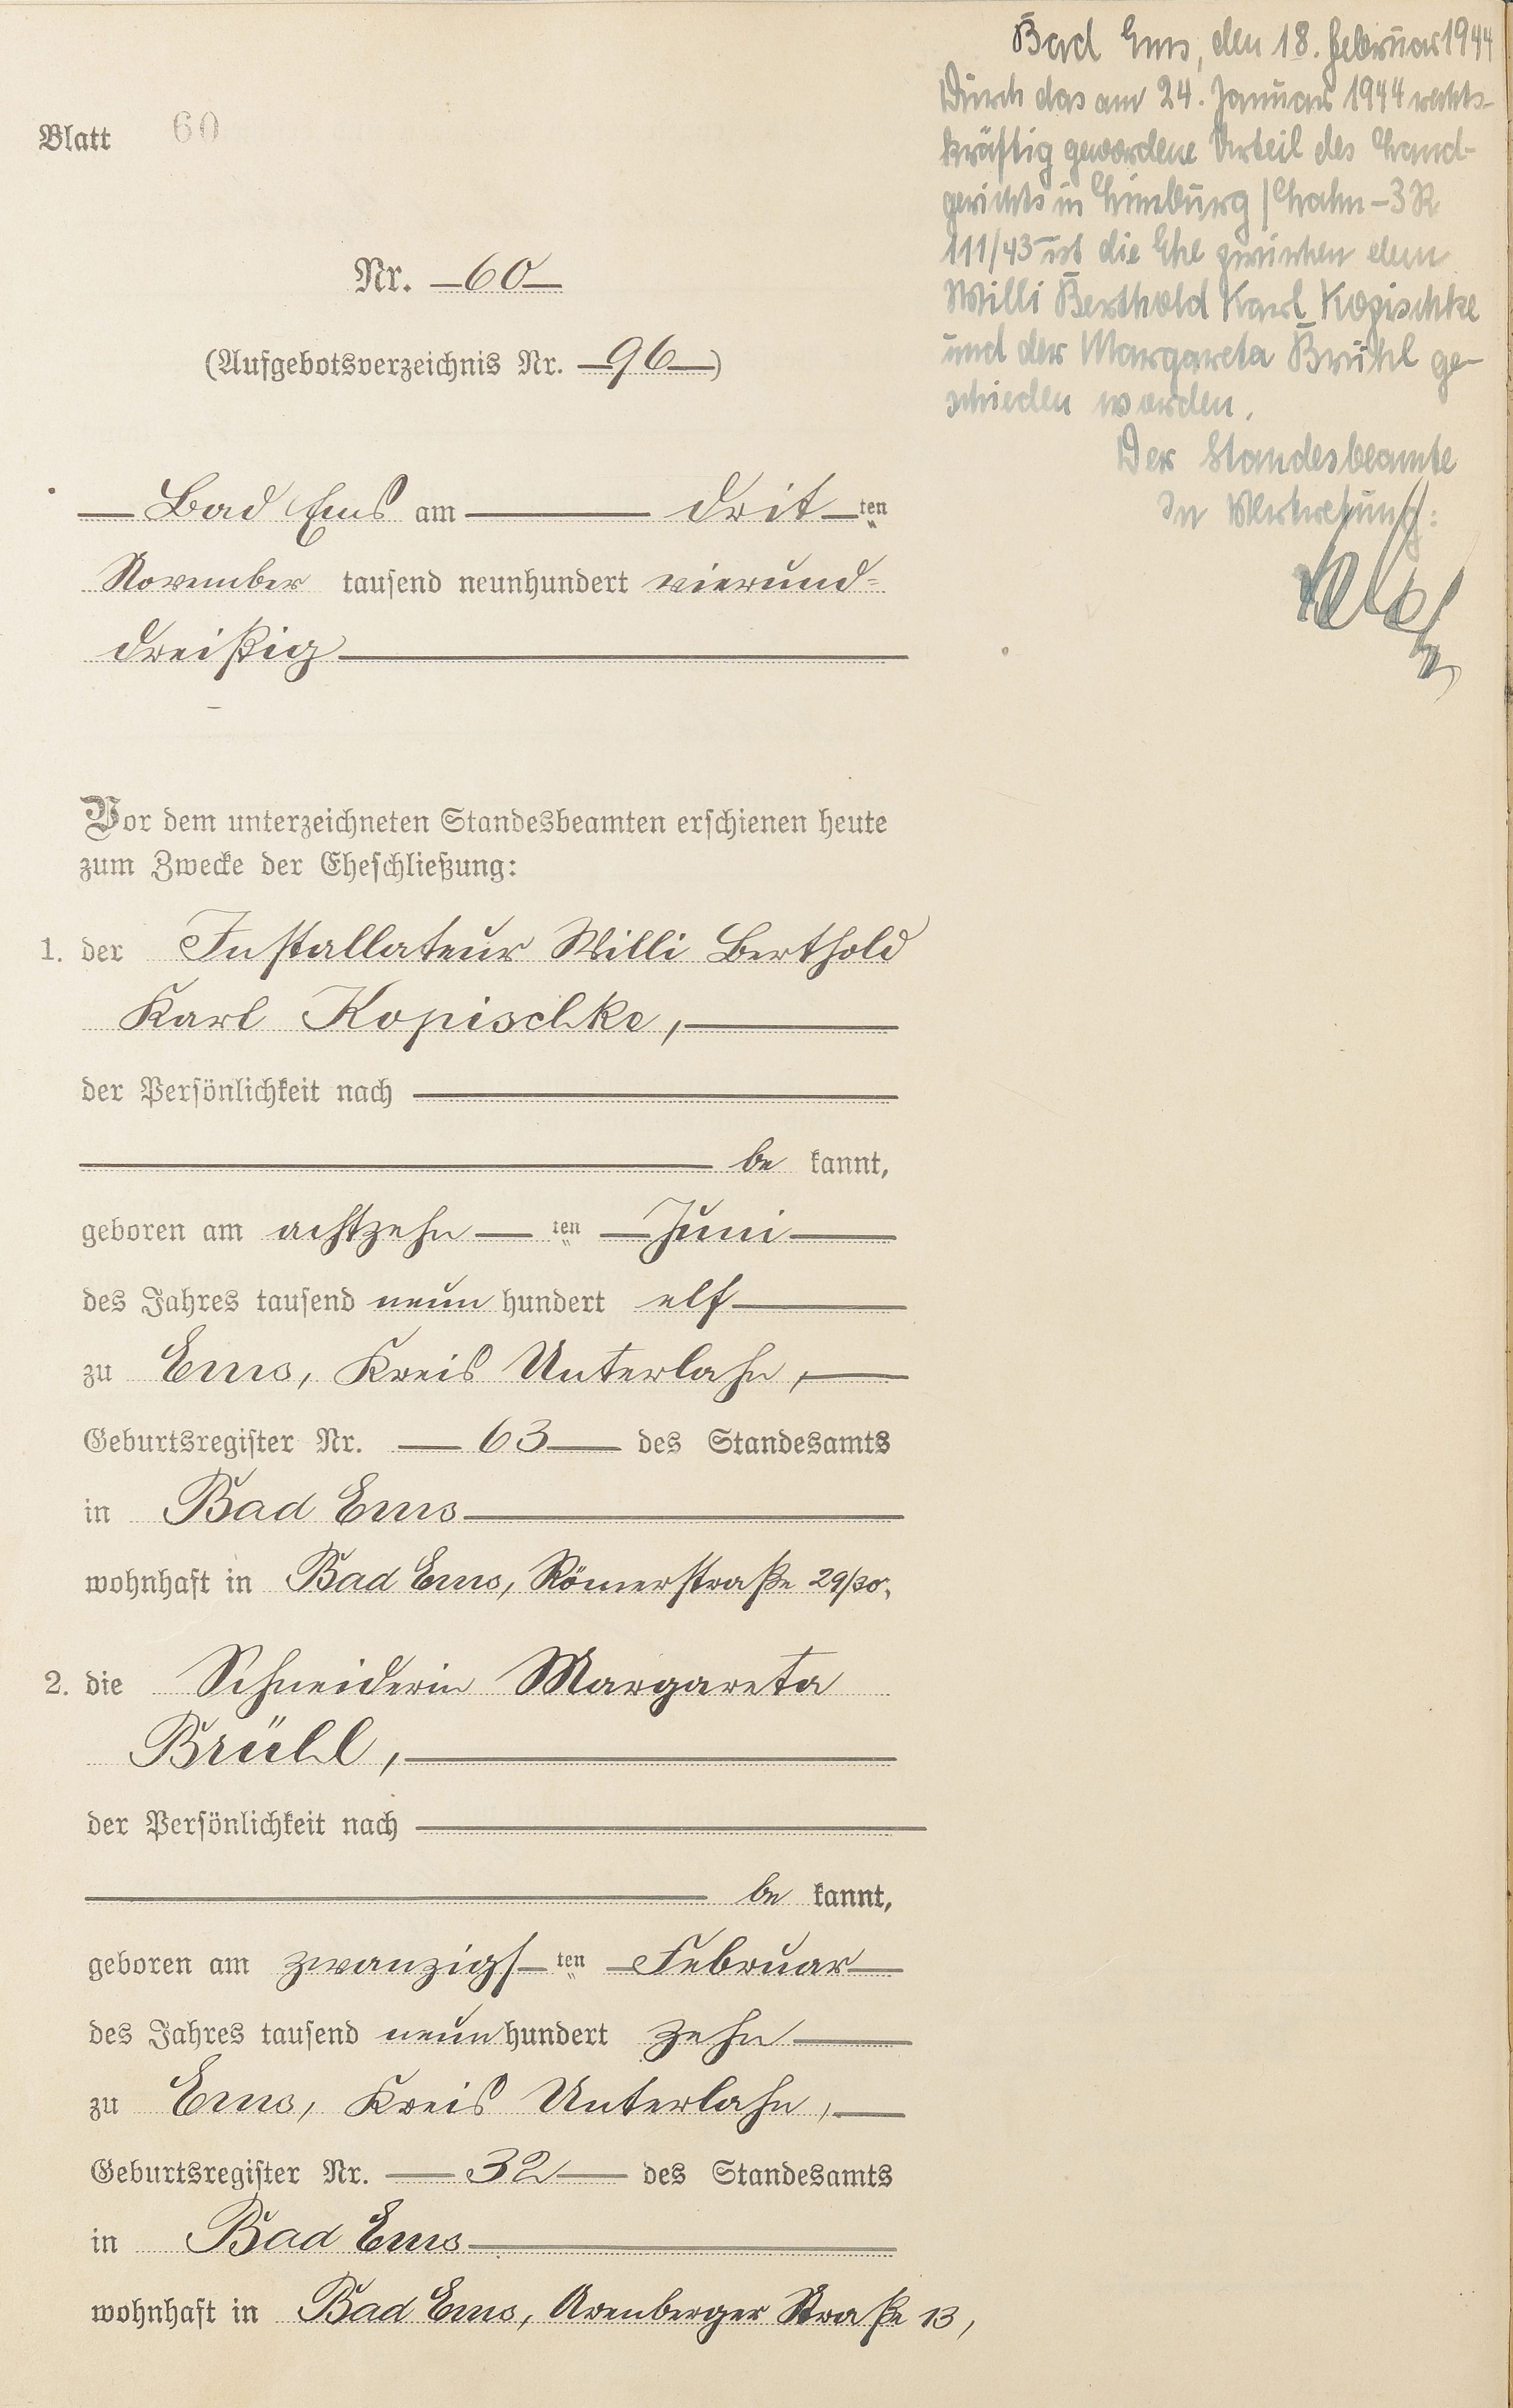 Blatt 60
Nr. 60
(Aufgebotsverzeichnis Nr. 96)
Bad Ems am drit ten
November tausend neunhundert vierund=
dreißig
Vor dem unterzeichneten Standesbeamten erschienen heute
zum Zwecke der Eheschließung:
1. der Installateur Willi Berthold
Karl Kopischke,
der Persönlichkeit nach
be kannt,
geboren am achtzehn ten Juni
des Jahres tausend neun hundert elf
zu Ems, Kreis Unterlahn,
Geburtsregister Nr. 63 des Standesamts
in Bad Ems
wohnhaft in Bad Ems, Römerstraße 29/30,
2. die Schneiderin Margareta
Brühl,
der Persönlichkeit nach
be kannt,
geboren am zwanzigs ten Februar
des Jahres tausend neun hundert zehn
zu Ems, Kreis Unterlahn,
Geburtsregister Nr. 32 des Standesamts
in Bad Ems
wohnhaft in Bad Ems, Arenberger Straße 13,
Bad Ems, den 18. Februar 1944
Durch das am 24. Januar 1944 rechts-
kräftig gewordene Urteil des Land-
gerichts in Limburg/Lahn - 3 R
111/43 - ist die Ehe zwischen dem
Willi Berthold Karl Kopischke
und der Margareta Brühl ge-
schieden worden.
Der Standesbeamte
In Vertretung: